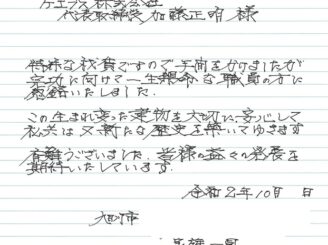 ケエプス株式会社
代表取締役 加藤正明 様
特殊な
ですので手間をかけましたが
完功に向けて一生懸命な職員の方に
いたしました。
この生まれ変った建物を大切に、安心して
私共は又新たな歴史を築いてゆきます
有難うございました。皆様の益々の発展を
期待いたしています。
令和2年10月 日
旭川市